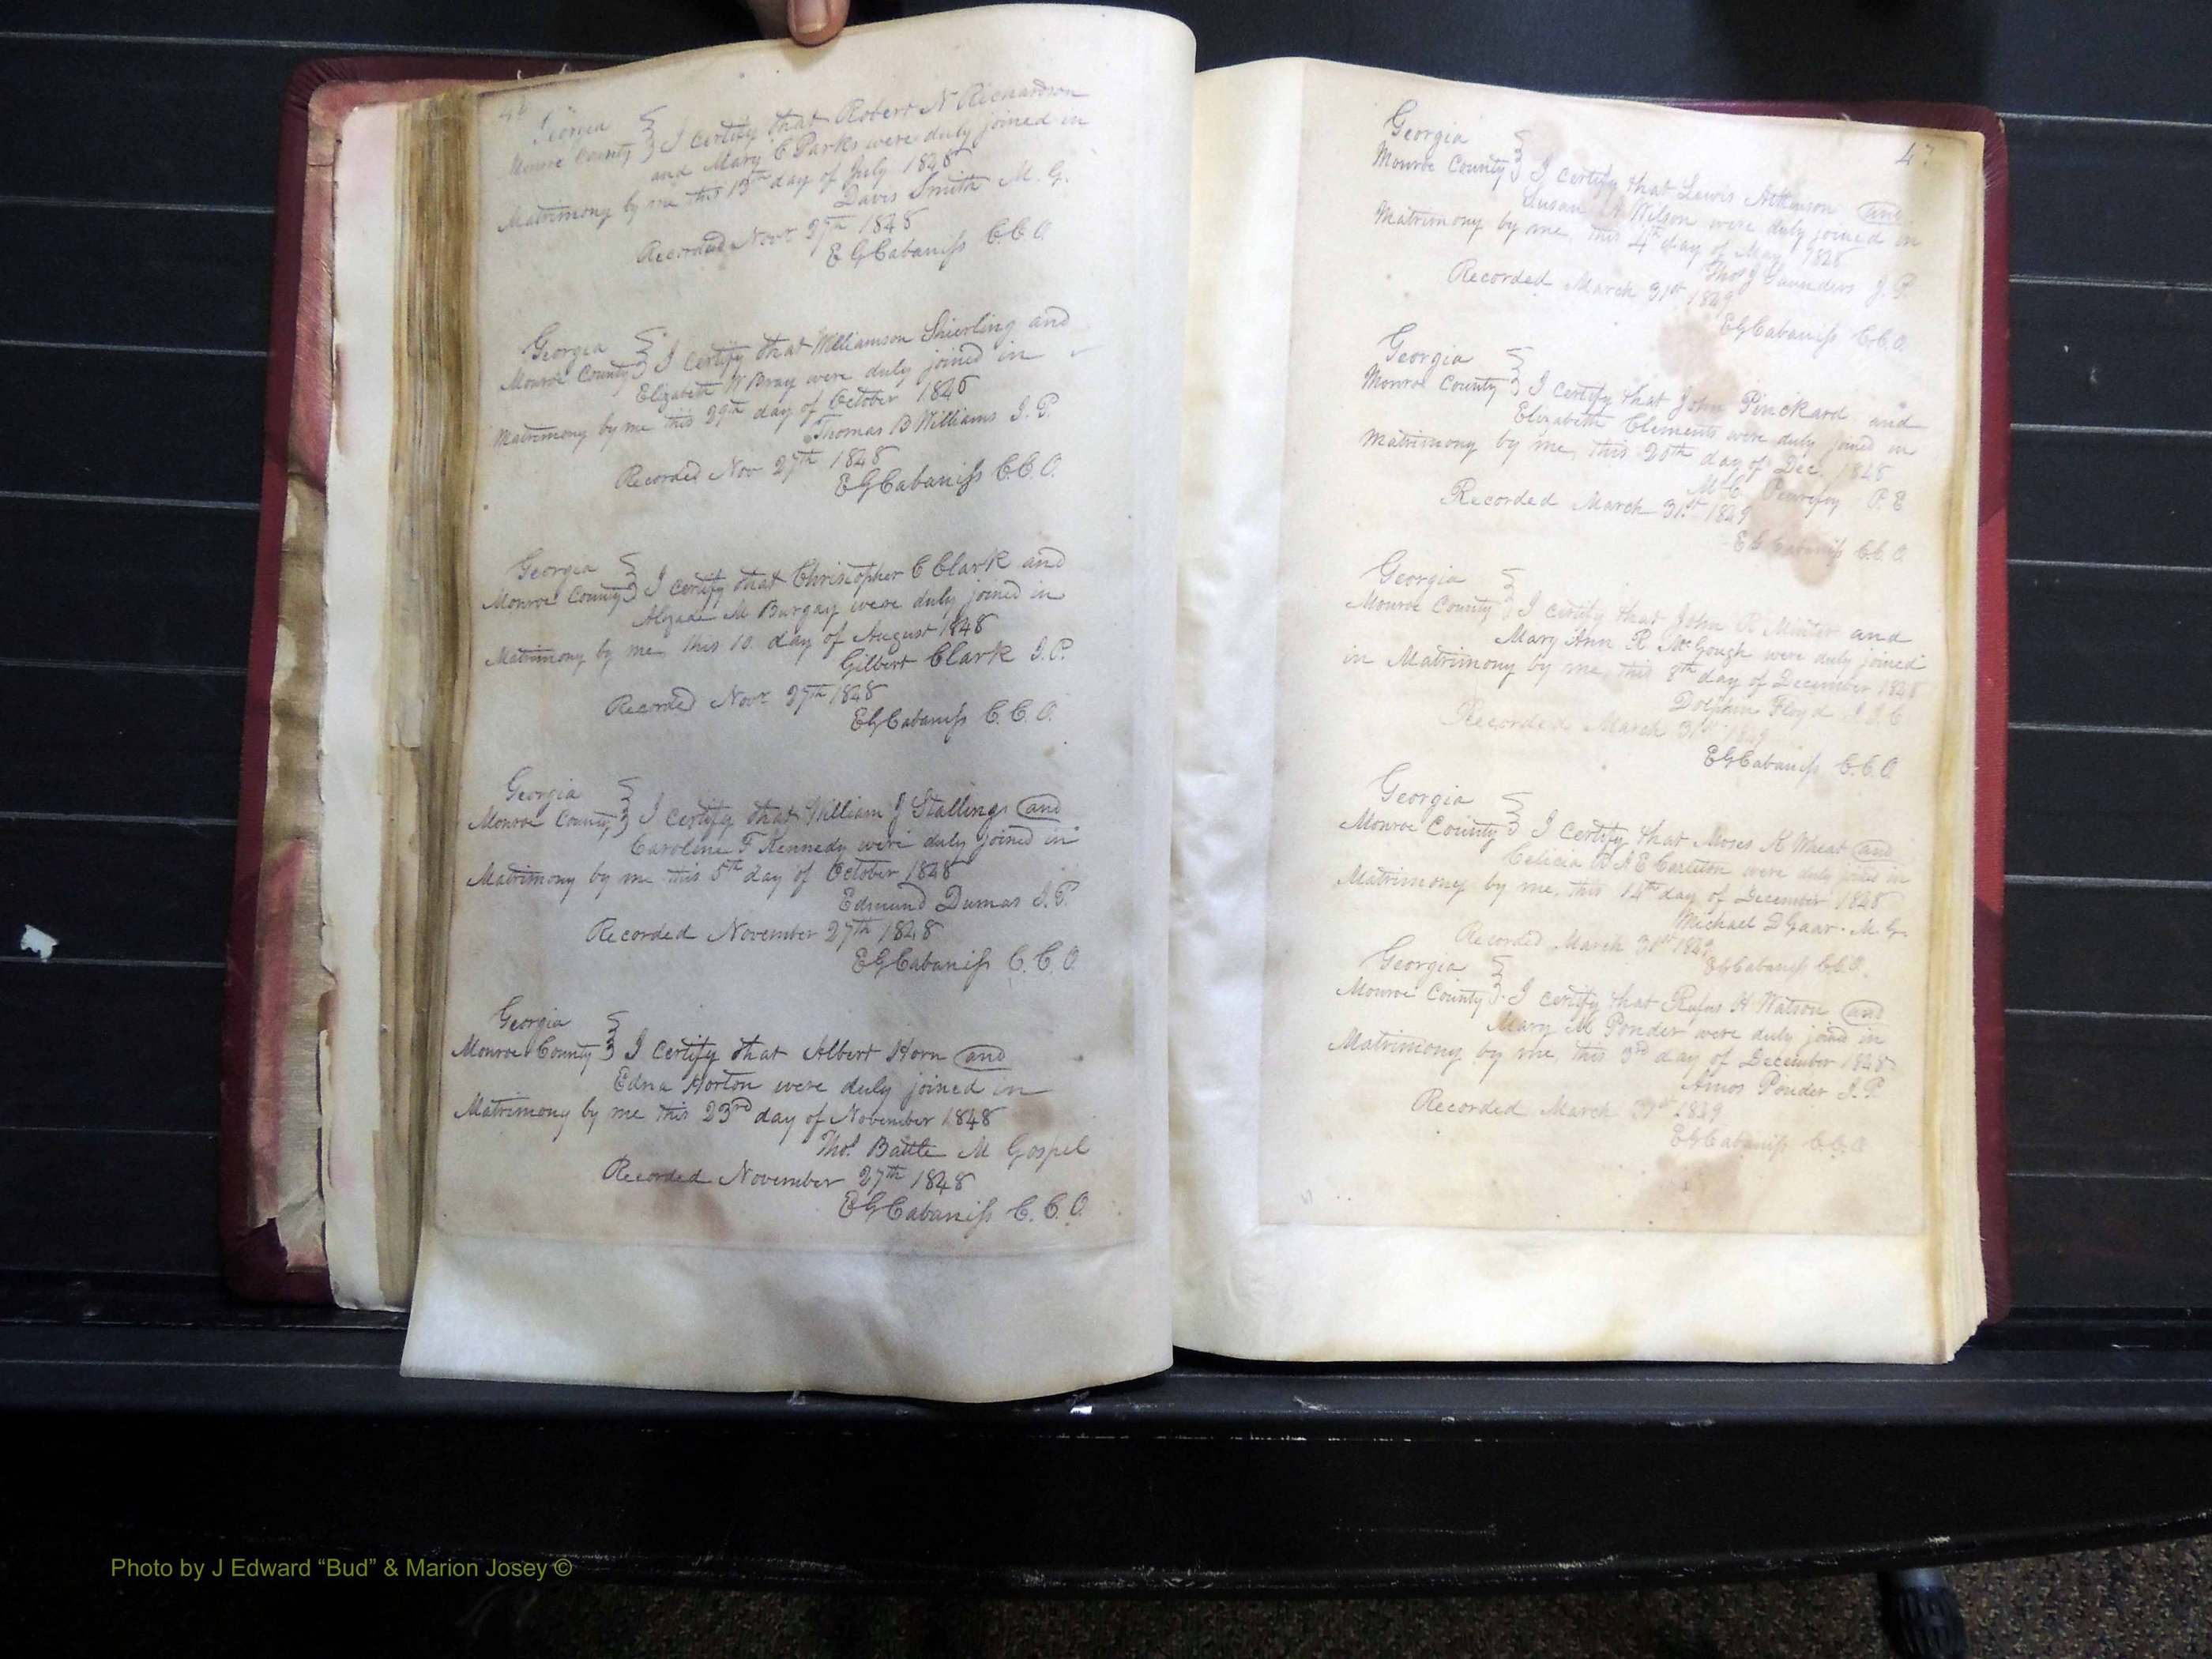 46
Georgia
Monroe County } I certify that Robert N Richardson
and Mary C Parks were duly joined in
Matrimony by me this 13th day of July 1848
Davis Smith M. G.
Recorded Novr 27th 1848
E G Cabaniss C. C. O.
Georgia
Monroe County } I certify that Williamson Shierling and
Elizabeth W Bray were duly joined in
Matrimony by me this 29th day of October 1846
Thomas B Williams J. P.
Recorded Nov 27th 1848
E G Cabaniss C. C. O.
Georgia
Monroe County } I certify that Christopher C Clark and
M Burgay were duly joined in
Matrimony by me, this 10. day of August 1848
Gilbert Clark J. P.
Recorded Novr 27th 1848
E G Cabaniss C. C. O.
Georgia
Monroe County } I certify that William J Stallings and
Caroline F Kennedy were duly joined in
Matrimony by me this 5th day of October 1848
Edmund Dumas J. P.
Recorded November 27th 1848
E G Cabaniss C. C. O.
Georgia
Monroe County } I certify that Albert Horn and
Edna Horton were duly joined in
Matrimony by me this 23rd day of November 1848
Thos. Battle M Gospel
Recorded November 27th 1848
E G Cabaniss C. C. O.
47
Georgia
Monroe County } I certify that Lewis Atkinson and
Susan A Wilson were duly joined in
Matrimony by me, this 4th day of May 1848
Thos J Saunders J. P.
Recorded March 31st 1849
E G Cabaniss C. C. O.
Georgia
Monroe County } I certify that John Pinckard and
Elizabeth Clements were duly joined in
Matrimony by me, this 20th day of Dec. 1848
M C.
Recorded March 31st 1849
E G Cabaniss C. C. O.
Georgia
Monroe County } I certify that John R Minter and
Mary Ann R McGough were duly joined
in Matrimony by me, this 8th day of December 1848
Dolphin Floyd J. I. C.
Recorded March 31st 1849
E G Cabaniss C. C. O.
Georgia
Monroe County } I certify that Moses K Wheat and
A E Carleton were duly joined in
Matrimony by me, this 14th day of December 1848
Michael D Gaar. M. G.
Recorded March 31st 1849
E G Cabaniss C. C. O.
Georgia
Monroe County } I certify that Rufus H Watson and
Mary M Ponder were duly joined in
Matrimony by me, this 3rd day of December 1848
Amos Ponder J. P.
Recorded March 31st 1849
E G Cabaniss C. C. O.
Photo by J Edward “Bud” & Marion Josey ©